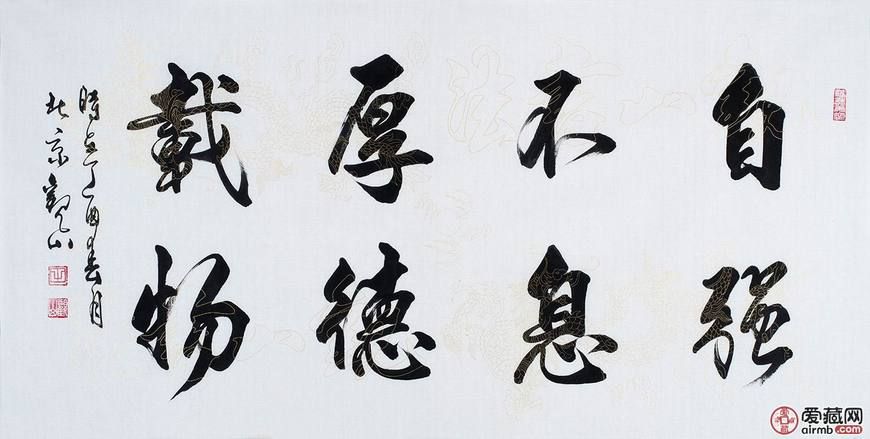 自强
不息
厚德
载物
時在丁酉春月
北京觀山
爱藏网
airmb.com